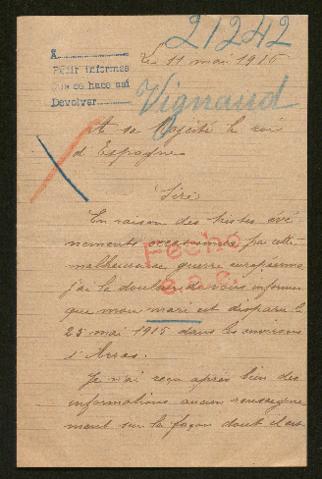 21242
A
Pedir informes
que se hace así
Devolver
Le 11 mai 1916
Vignaud
A sa Majesté le roi
d'Espagne
Sire
En raison des tristes évé
nements occasionnés par cette
malheureuse guerre européenne,
j'ai la douleur de vous informer
que mon mari est disparu le
25 mai 1915 dans les environs
d'Arras.
Fecho
Je n'ai reçu après bien des
informations aucun renseigne
ment sur la façon dont il est